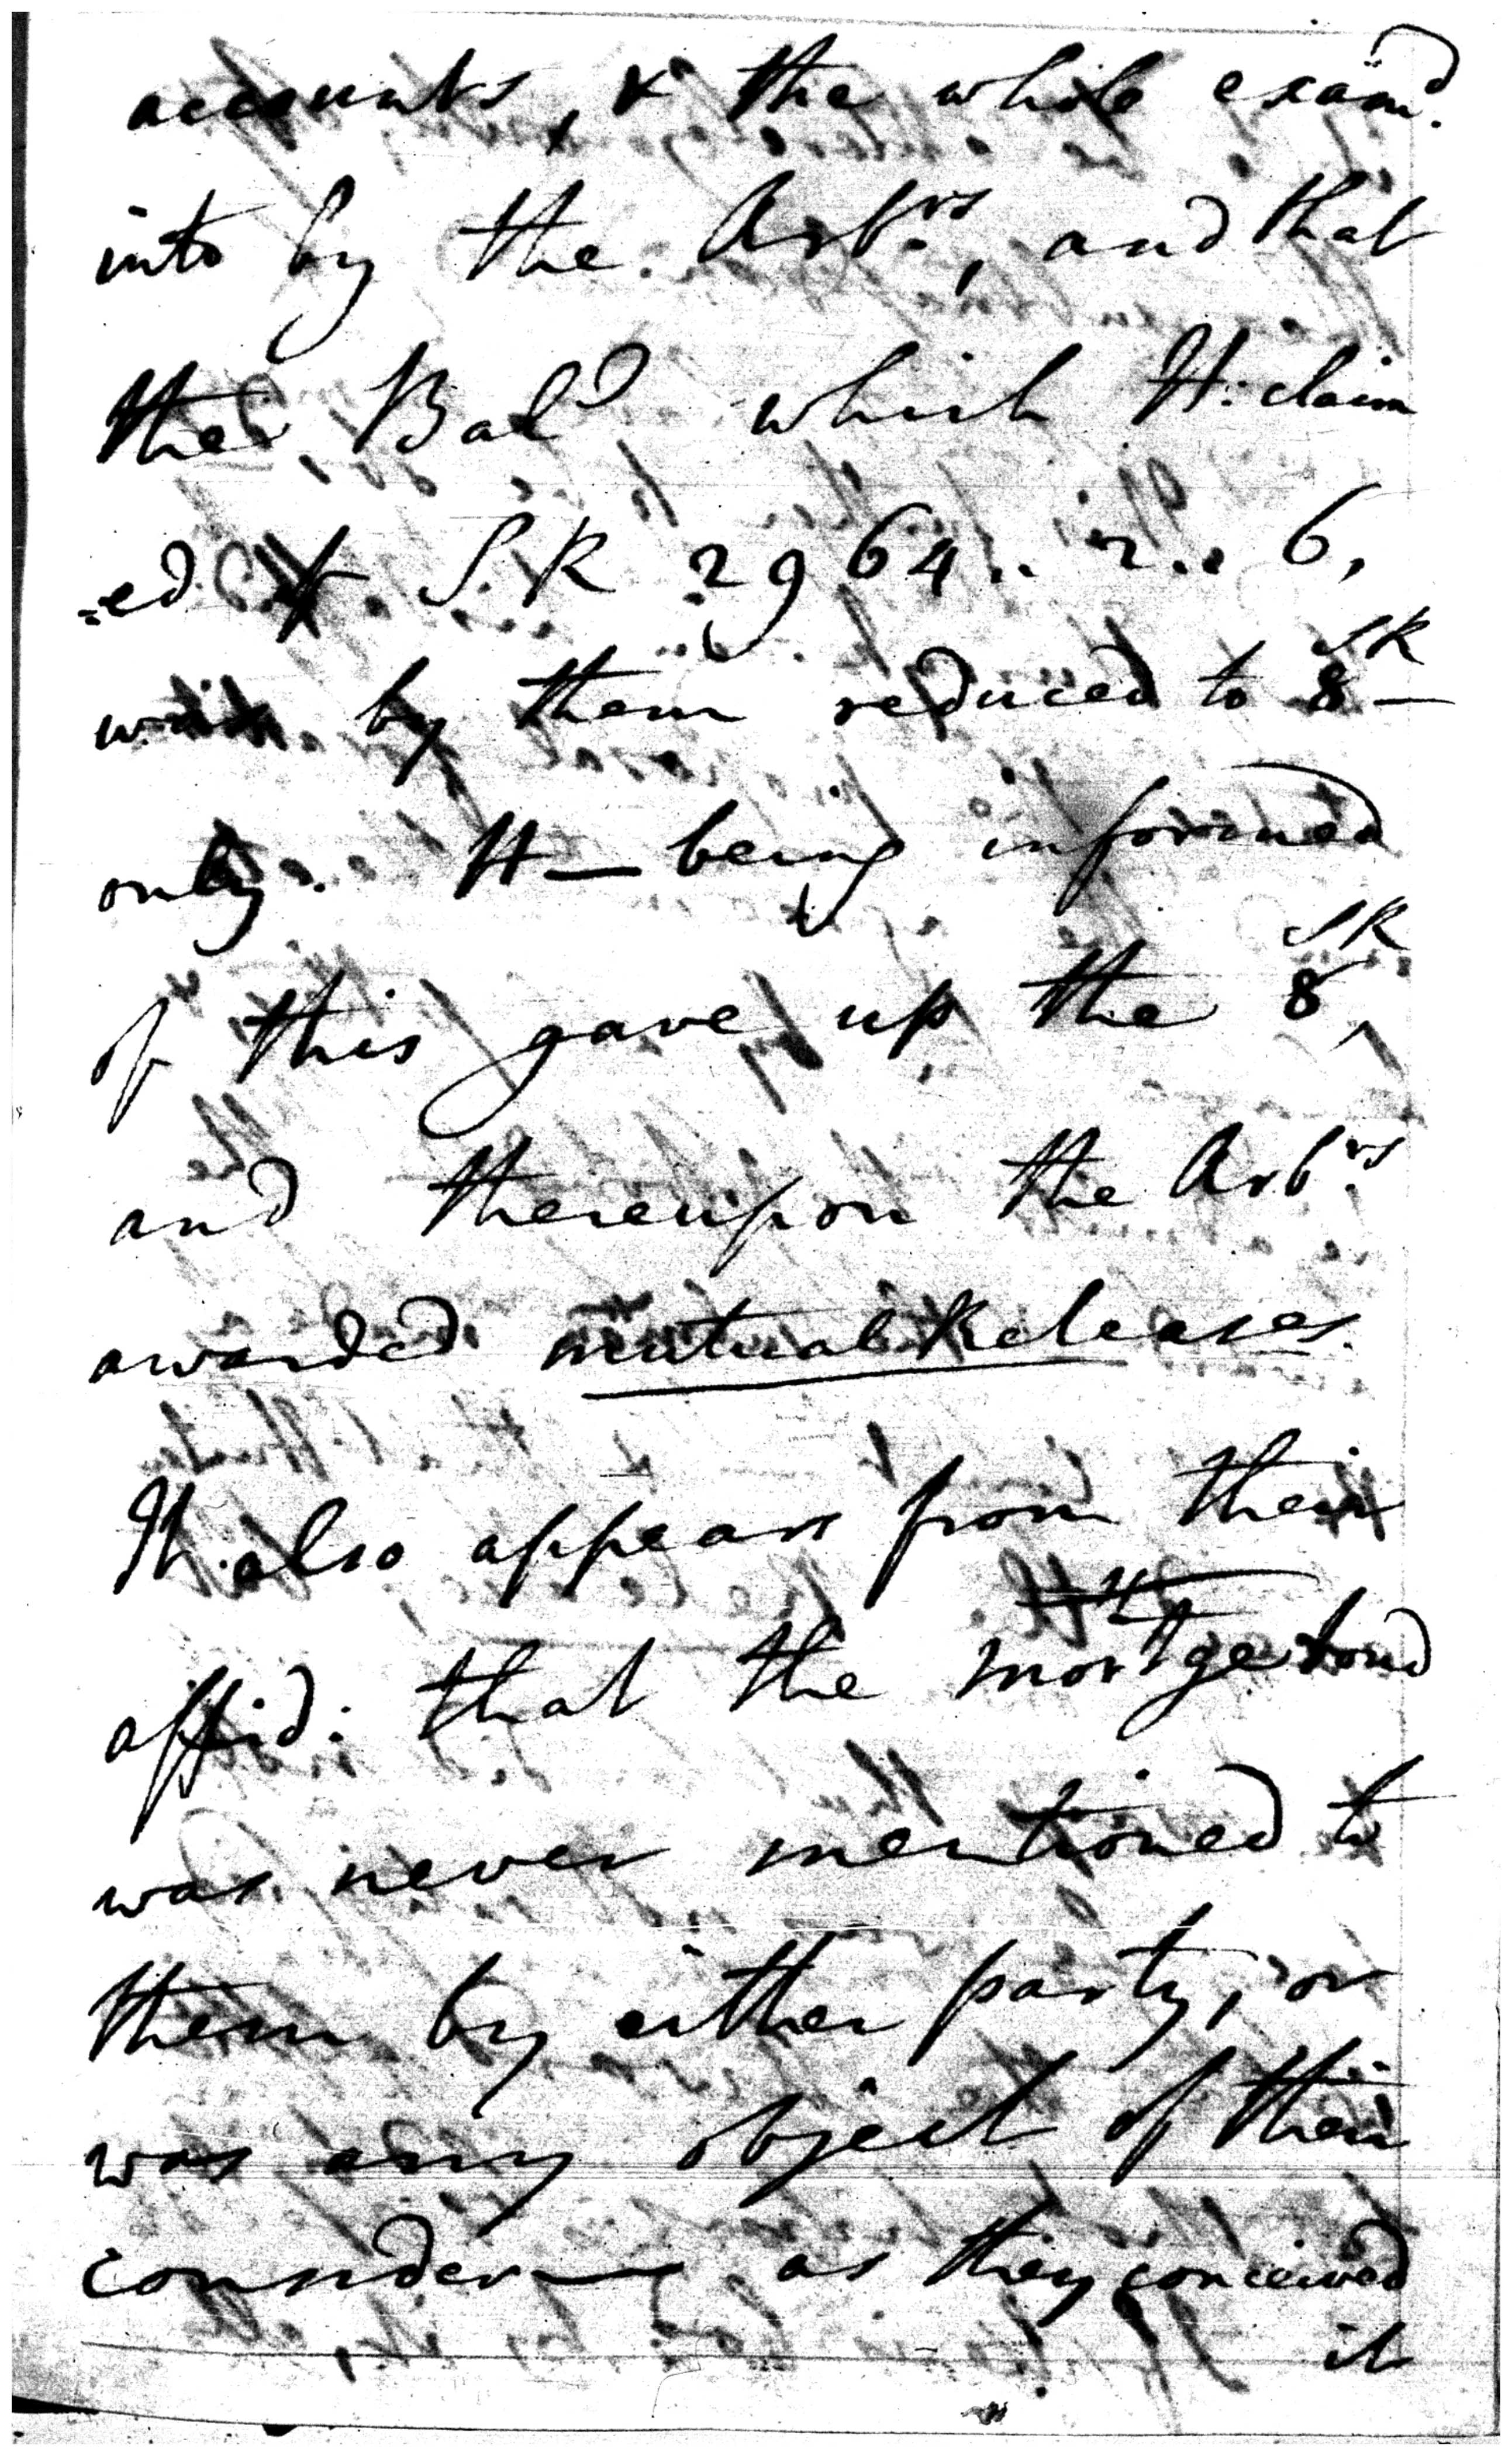 accounts, & the whole exam.d
into by the Arb.rs, and that
the Bal.d which H: claim
=ed SR 2964..2..6,
was by them reduced to 8 SR —
only. H— being informed
of this gave up the 8 SR,
and thereupon the Arb.rs
awarded mutual Releases.
It also appears from their
affid: that the mortge bond
was never mentioned to
them by either party, or
was any object of their
consider— as they conceived
it